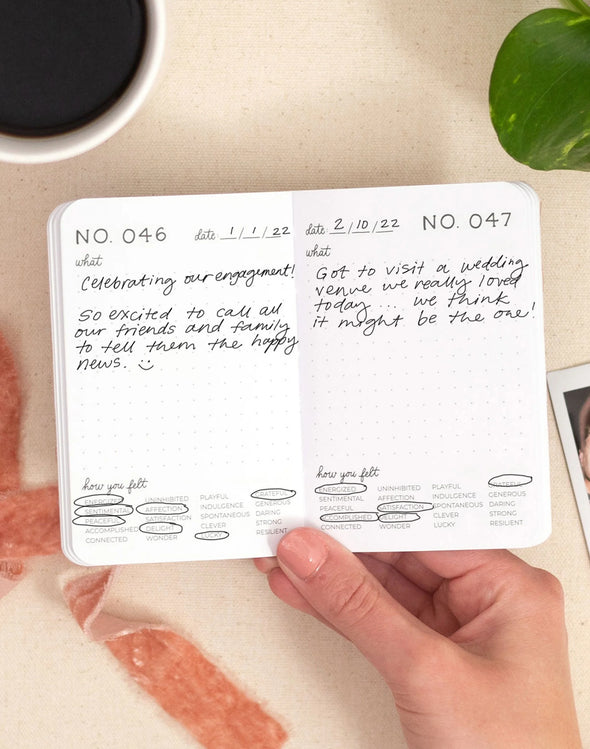 NO. 046
date 1/1/22
what
Celebrating our engagement!
So excited to call all
our friends and family
to tell them the happy
news. :)
how you felt
ENERGIZED UNINHIBITED PLAYFUL GRATEFUL
SENTIMENTAL AFFECTION INDULGENCE GENEROUS
PEACEFUL SATISFACTION SPONTANEOUS DARING
ACCOMPLISHED DELIGHT CLEVER STRONG
CONNECTED WONDER LUCKY RESILIENT
date 2/10/22
NO. 047
what
Got to visit a wedding
venue we really loved
today... we think
it might be the one!
how you felt
ENERGIZED UNINHIBITED PLAYFUL GRATEFUL
SENTIMENTAL AFFECTION INDULGENCE GENEROUS
PEACEFUL SATISFACTION SPONTANEOUS DARING
ACCOMPLISHED DELIGHT CLEVER STRONG
CONNECTED WONDER LUCKY RESILIENT